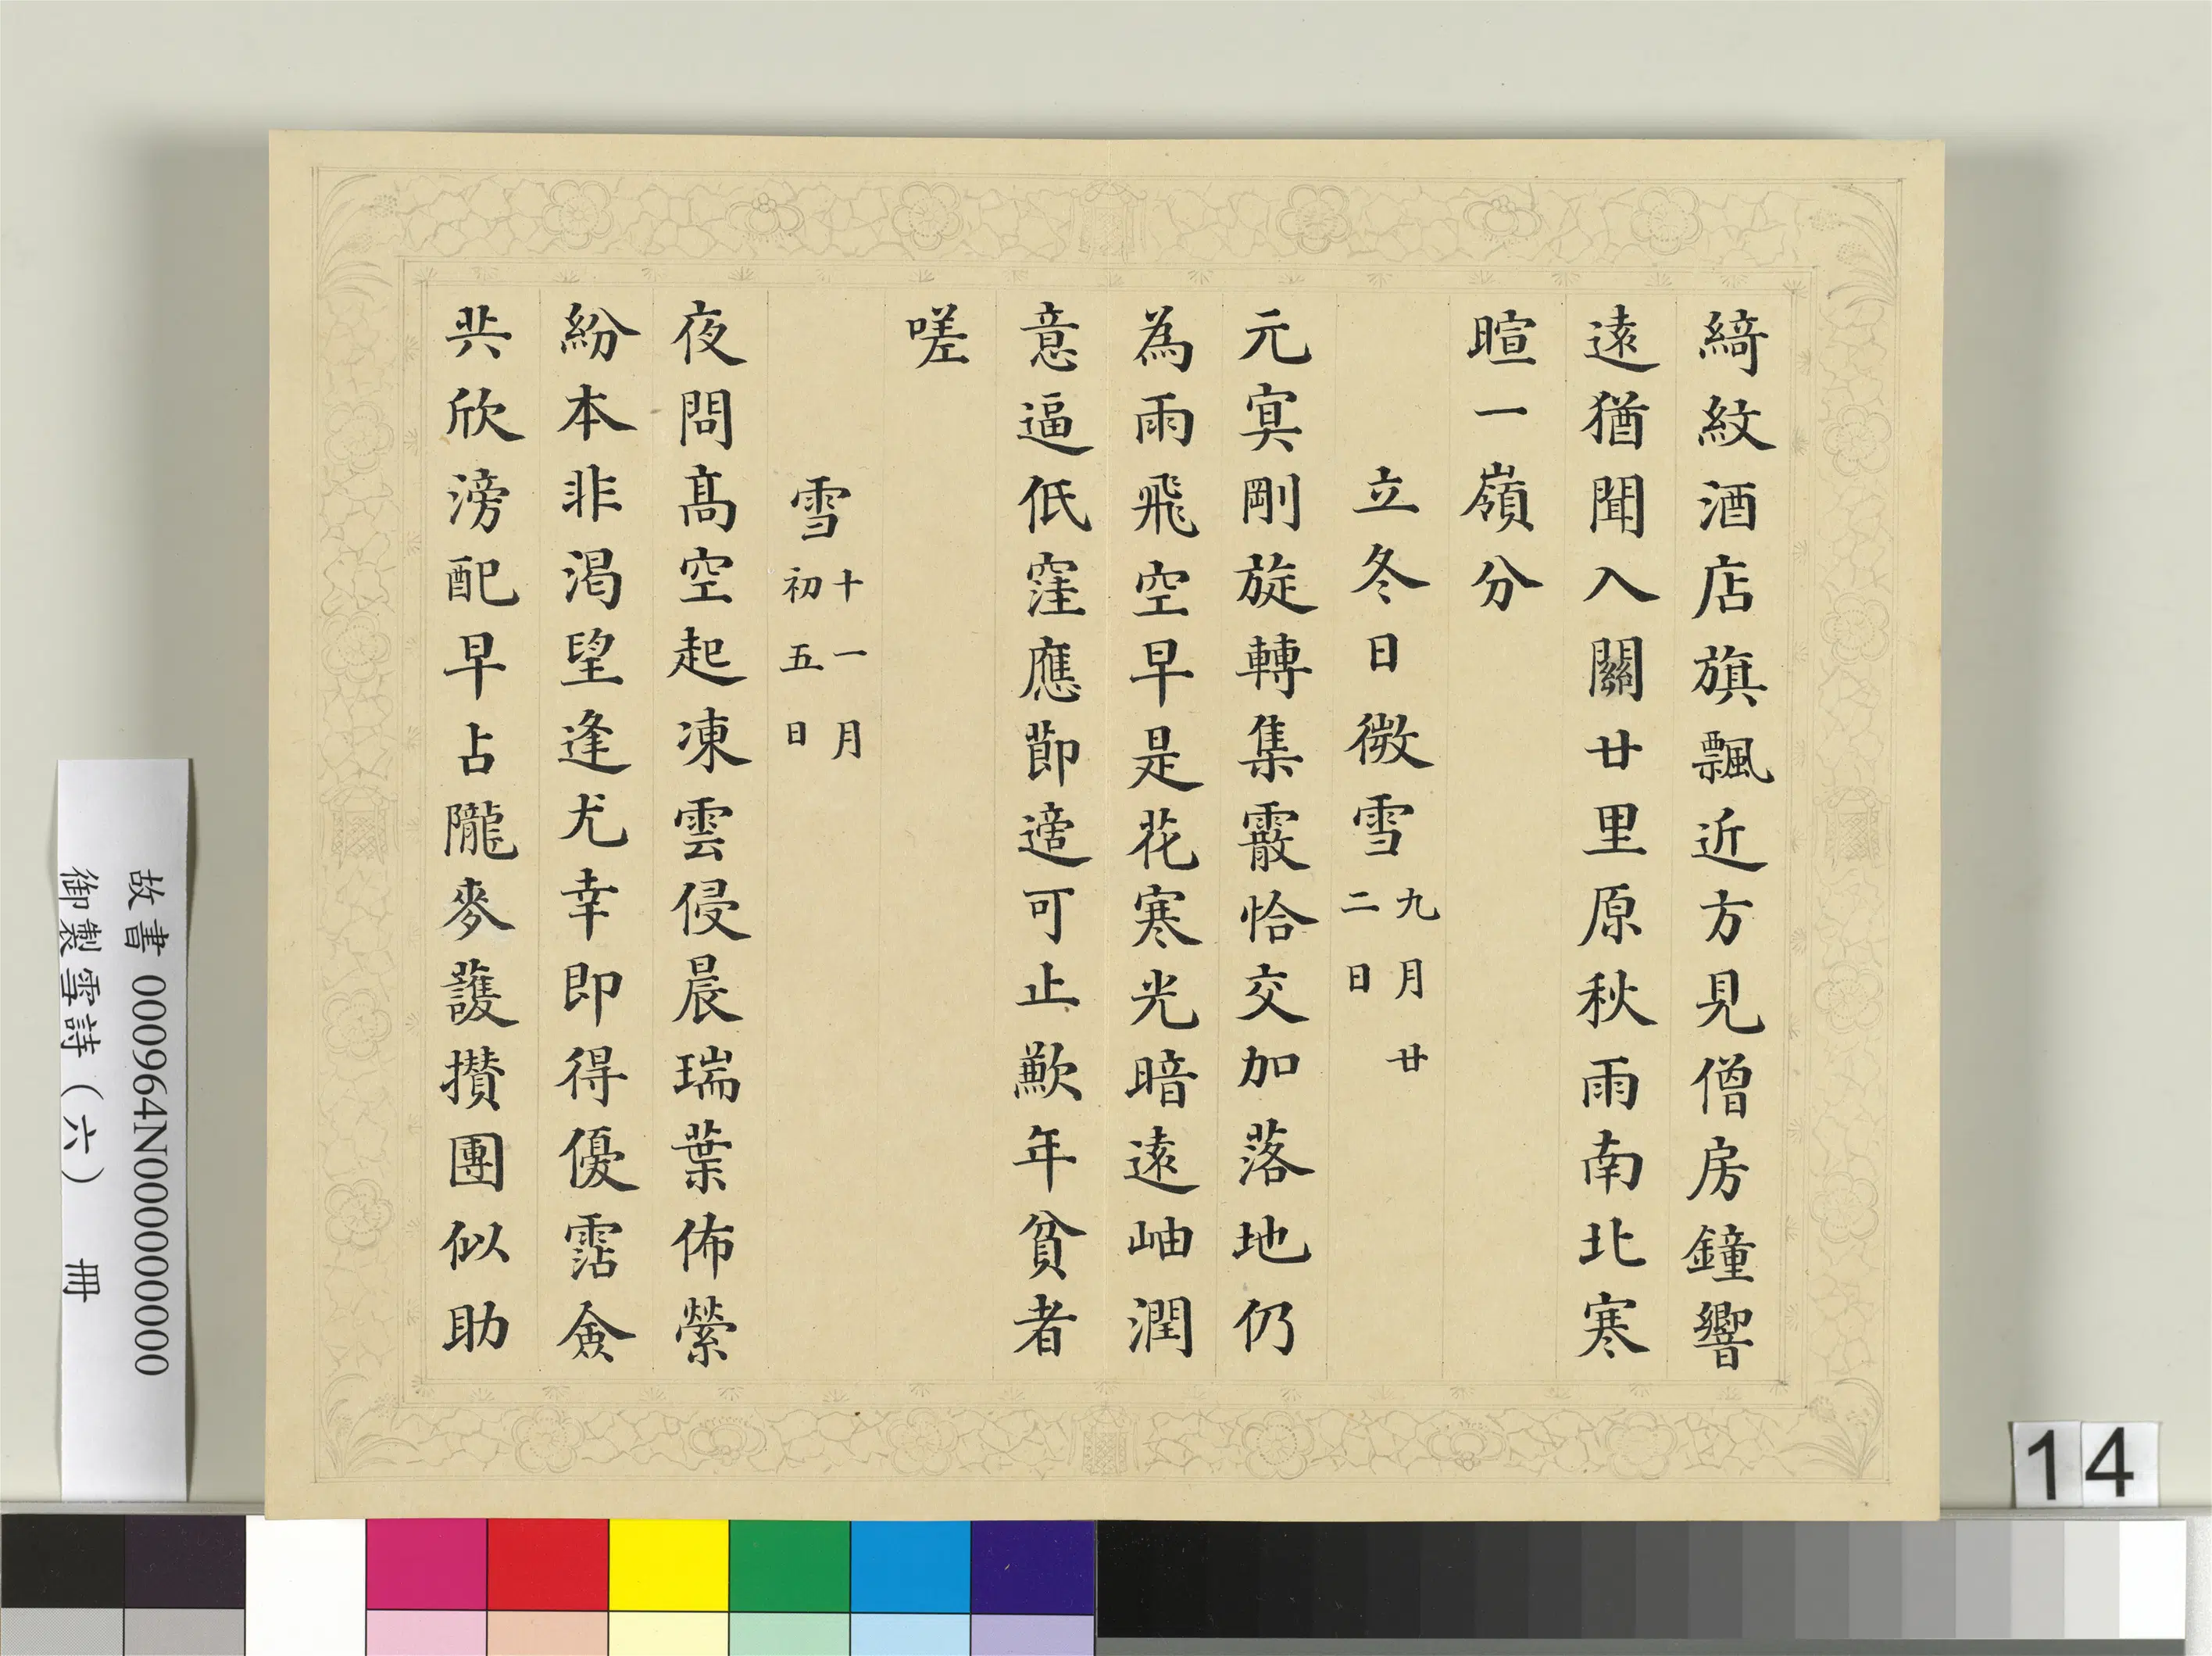 綺紋酒店旗飄近方見僧房鐘響
遠猶聞入關廿里原秋雨南北寒
暄一嶺分
立冬日微雪九月廿二日
元冥剛旋轉集霰恰交加落地仍
為雨飛空早是花寒光暗遠岫潤
意逼低窪應節適可止歉年貧者
嗟
雪十一月初五日
夜問高空起凍雲侵晨瑞葉佈縈
紛本非渴望逢尤幸即得優霑僉
共欣滂配早占隴麥護攢團似助
故書 000964N000000000
御製雪詩（六） 冊
14